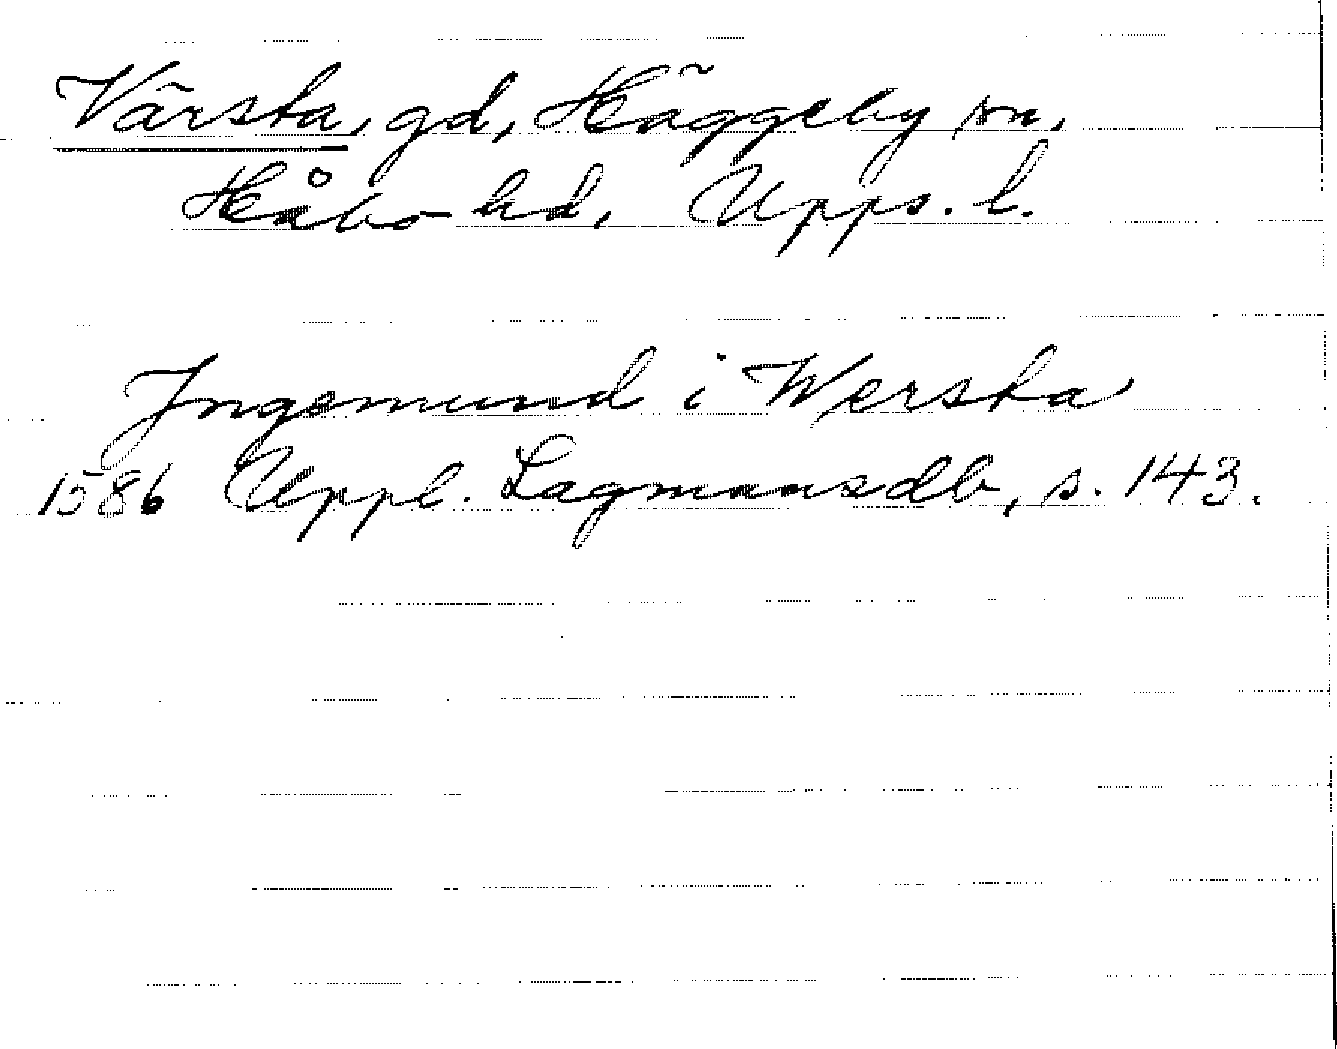 Värsta, gd, Häggeby sn,
Håbo hd, Upps. l.
Ingemund i Wersta
1586 Uppl. Lagmansdb, s. 143.